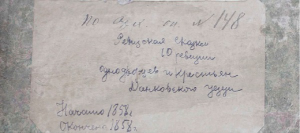 по сд. оп. № 148
Ревизская сказка
10 ревизии
однодворцев и крестьян
Данковского уезда
Начато 1858 г.
Окончено 1858 г.